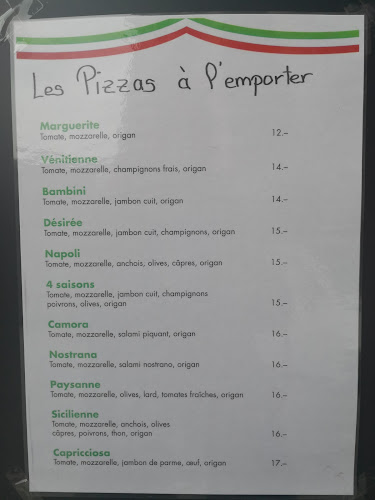 Les Pizzas à l'emporter
Marguerite
Tomate, mozzarelle, origan 12.–
Vénitienne
Tomate, mozzarelle, champignons frais, origan 14.–
Bambini
Tomate, mozzarelle, jambon cuit, origan 14.–
Désirée
Tomate, mozzarelle, jambon cuit, champignons, origan 15.–
Napoli
Tomate, mozzarelle, anchois, olives, câpres, origan 15.–
4 saisons
Tomate, mozzarelle, jambon cuit, champignons
poivrons, olives, origan 15.–
Camora
Tomate, mozzarelle, salami piquant, origan 16.–
Nostrana
Tomate, mozzarelle, salami nostrano, origan 16.–
Paysanne
Tomate, mozzarelle, olives, lard, tomates fraîches, origan 16.–
Sicilienne
Tomate, mozzarelle, anchois, olives
câpres, poivrons, thon, origan 16.–
Capricciosa
Tomate, mozzarelle, jambon de parme, œuf, origan 17.–